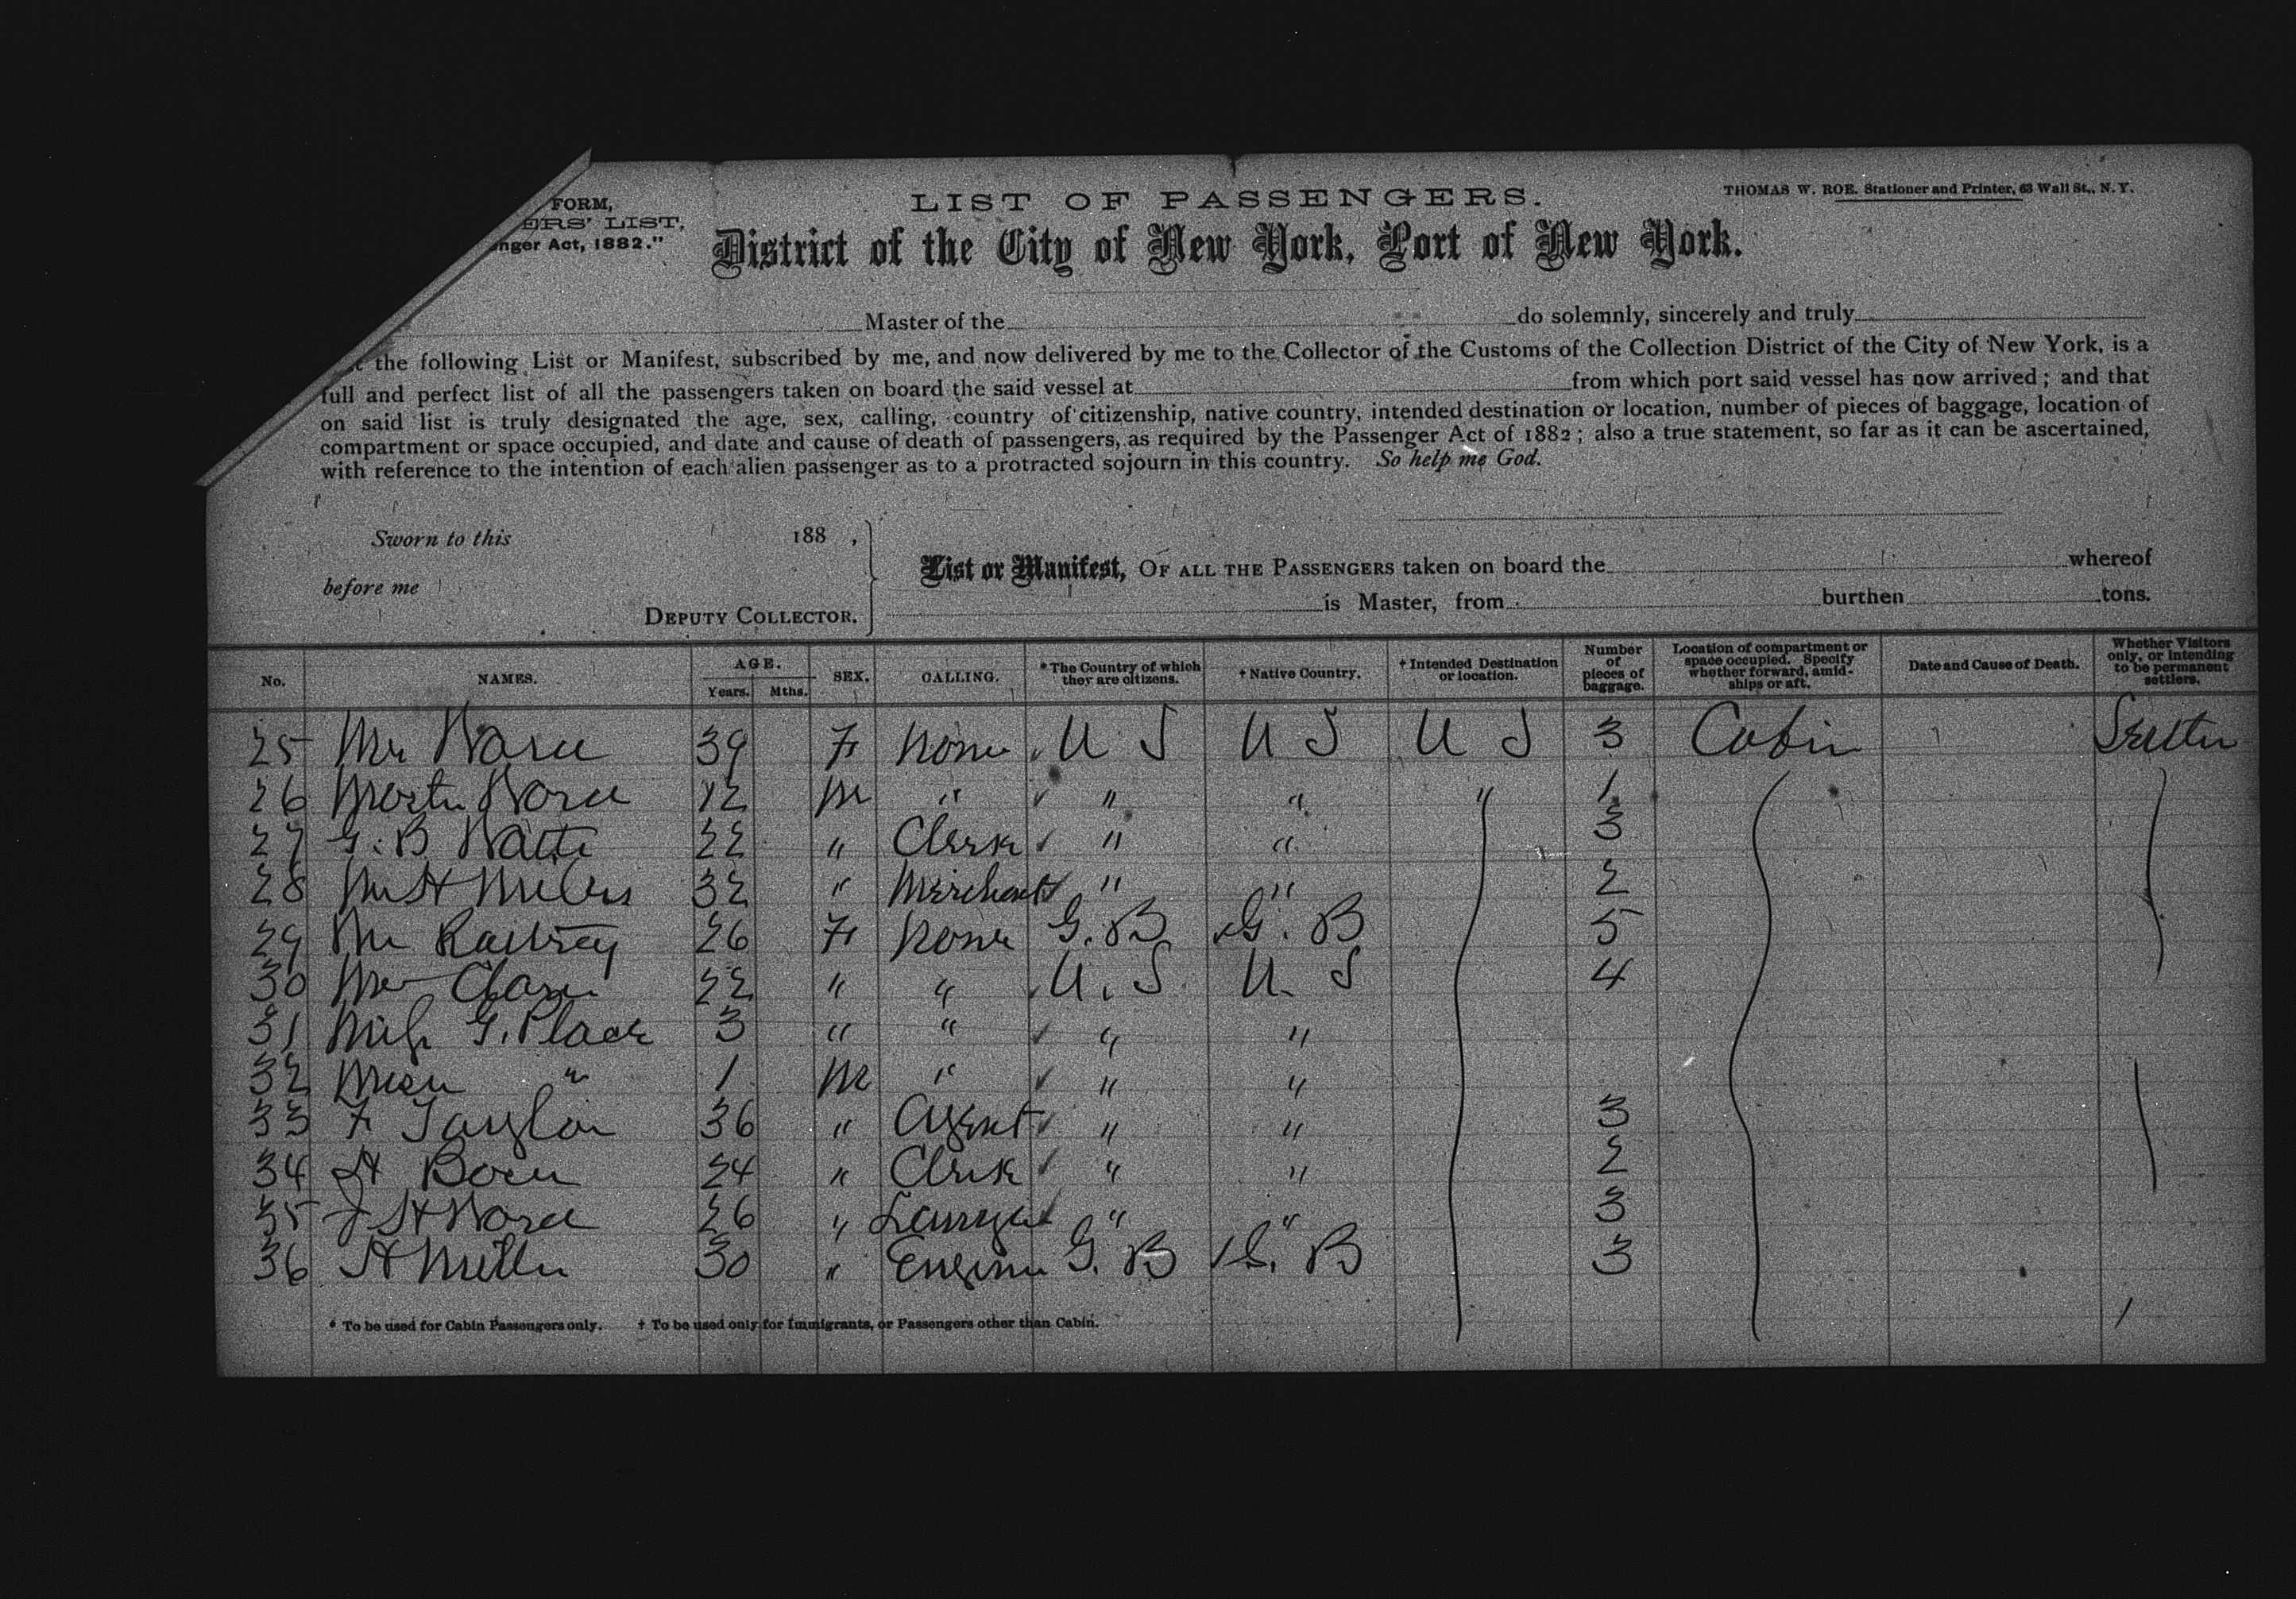 FORM,
ERS' LIST,
nger Act, 1882."
LIST OF PASSENGERS.
THOMAS W. ROE. Stationer and Printer, 63 Wall St., N. Y.
District of the City of New York, Port of New York.
Master of the do solemnly, sincerely and truly
the following List or Manifest, subscribed by me, and now delivered by me to the Collector of the Customs of the Collection District of the City of New York, is a
full and perfect list of all the passengers taken on board the said vessel at from which port said vessel has now arrived; and that
on said list is truly designated the age, sex, calling, country of citizenship, native country, intended destination or location, number of pieces of baggage, location of
compartment or space occupied, and date and cause of death of passengers, as required by the Passenger Act of 1882; also a true statement, so far as it can be ascertained,
with reference to the intention of each alien passenger as to a protracted sojourn in this country. So help me God.
Sworn to this 188 ,
before me
DEPUTY COLLECTOR.
List or Manifest, OF ALL THE PASSENGERS taken on board the whereof
is Master, from burthen tons.
No. NAMES. AGE. Years. Mths. SEX. CALLING. * The Country of which they are citizens. † Native Country. † Intended Destination or location. Number of pieces of baggage. Location of compartment or space occupied. Specify whether forward, amidships or aft. Date and Cause of Death. Whether Visitors only, or intending to be permanent settlers.
25 39 F None U S U S U S 3 Cabin
26 12 M " " " " 1
27 G. B 22 " Clerk " " 3
28 32 " Merchant " " 2
29 26 F None G. B G. B 5
30 22 " " U. S U. S 4
31 G. Place 3 " " " "
32 " 1 M " " "
33 F Taylor 36 " Agent " " 3
34 H 24 " Clerk " " 2
35 J H 26 " " " 3
36 H Miller 30 " G. B G. B 3
* To be used for Cabin Passengers only. † To be used only for Immigrants, or Passengers other than Cabin.